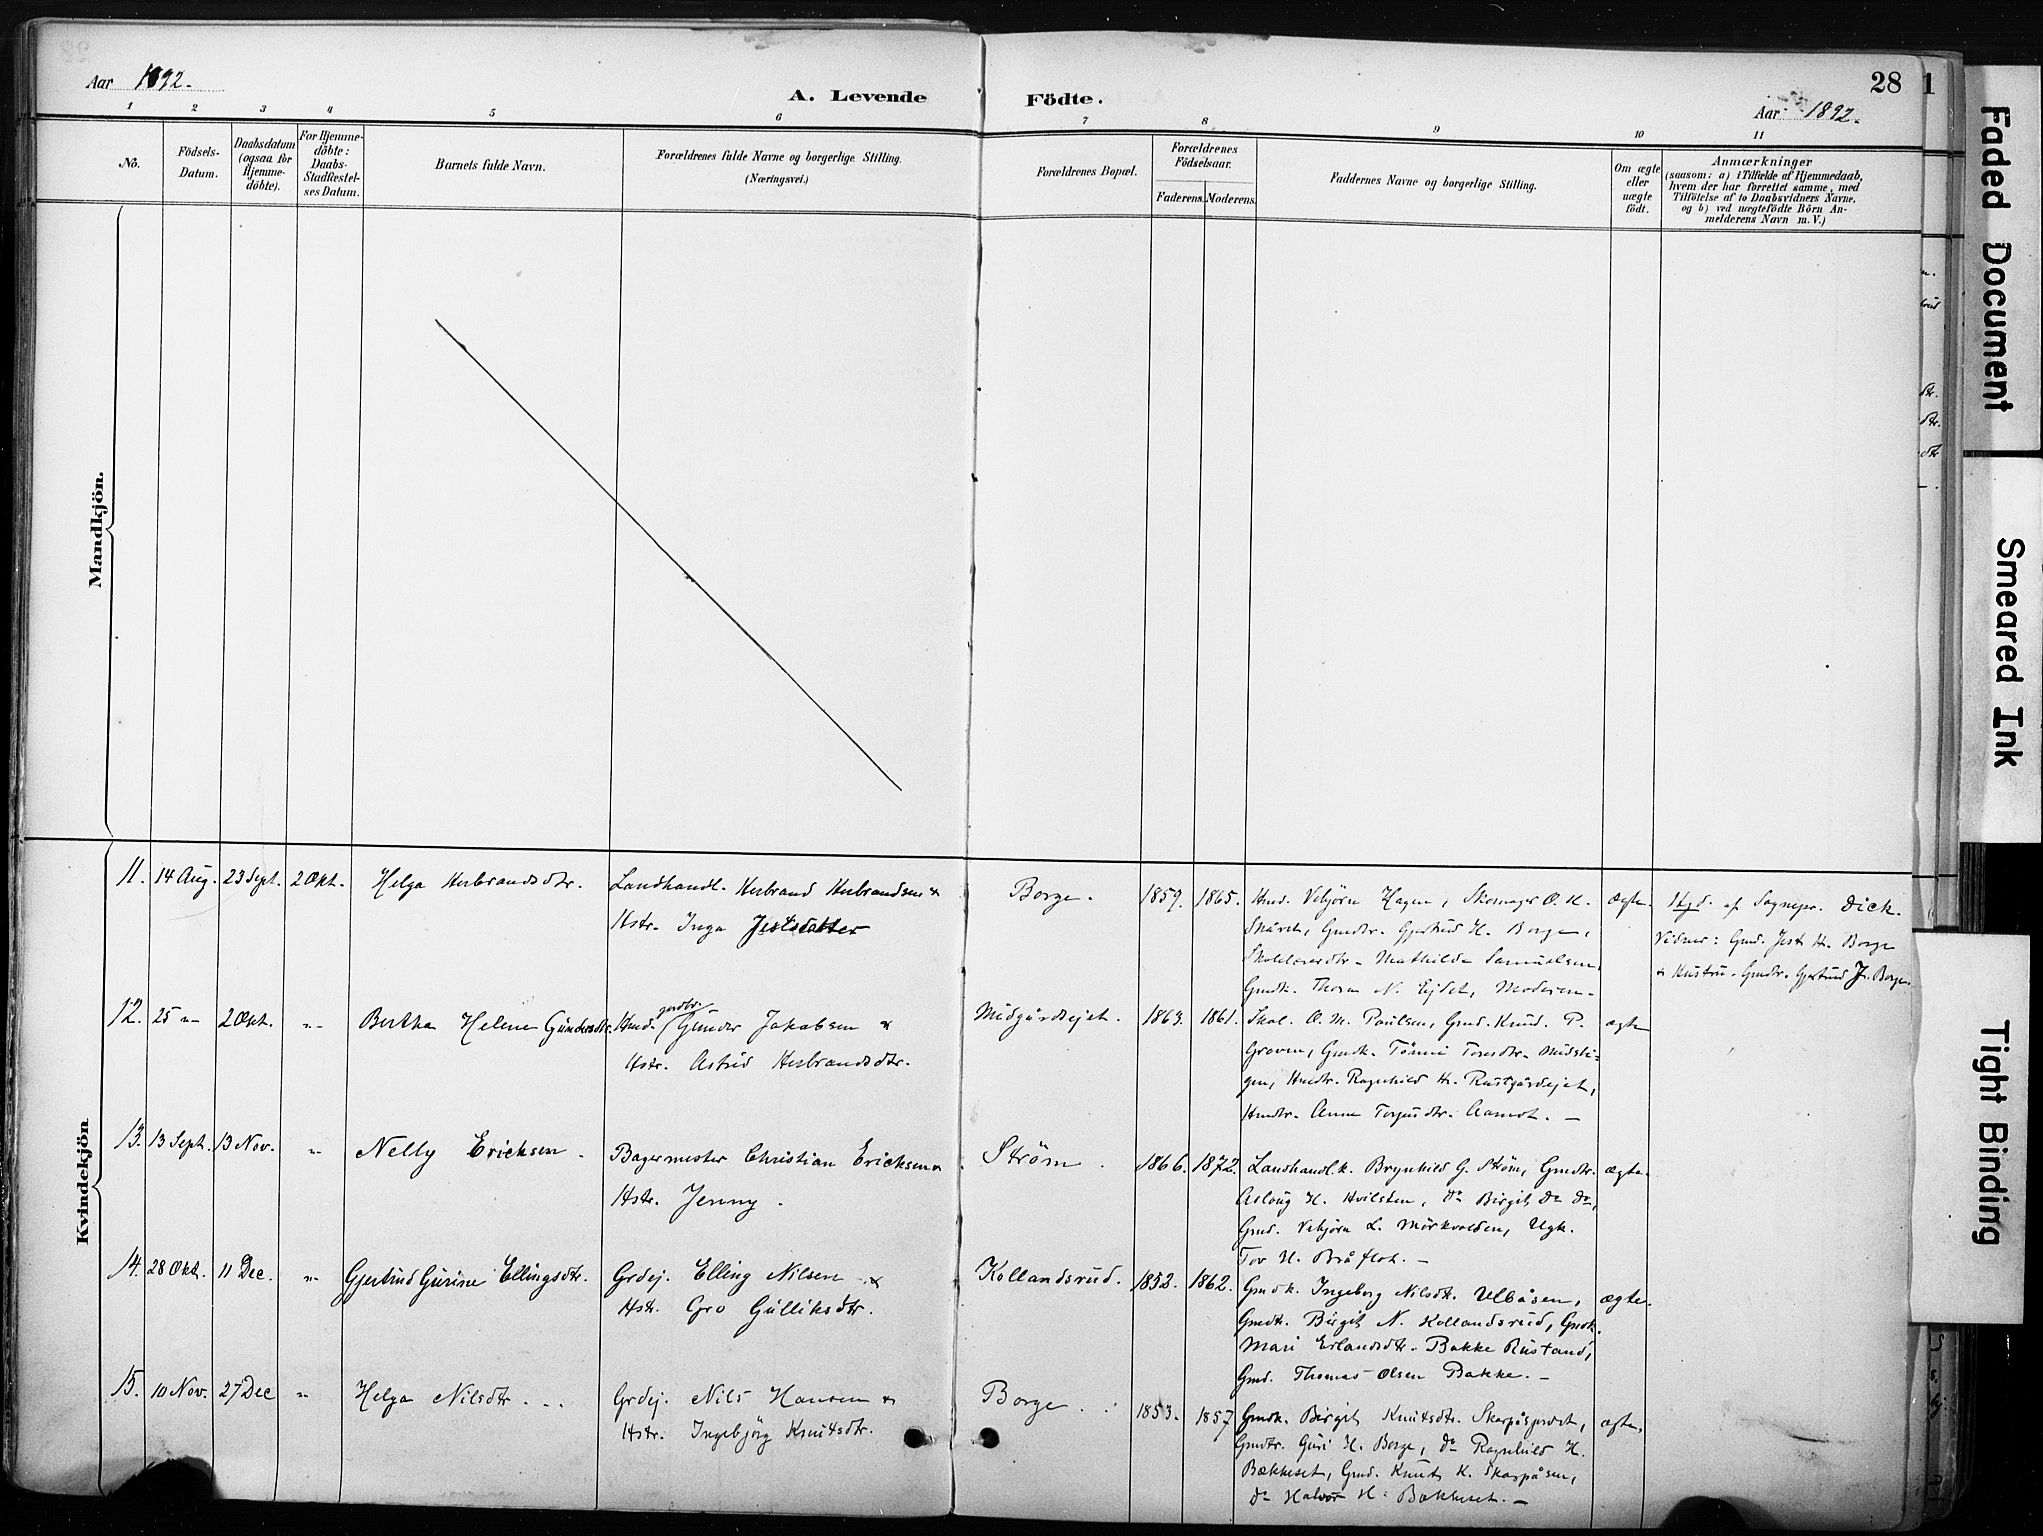 Aar 1892.
A. Levende Födte.
28
1
Aar 1892.
1 2 3 4 5 6 7 8 9 10 11
Nö.
Födsels-Datum.
Daabsdatum (ogsaa for Hjemme-döbte).
For Hjemme-döbte: Daabs-Stadfæstel-ses Datum.
Barnets fulde Navn.
Forældrenes fulde Navne og borgerlige Stilling.
(Næringsvei.)
Forældrenes Bopæl.
Forældrenes Födselsaar.
Faderens. Moderens.
Faddernes Navne og borgerlige Stilling.
Om ægte eller uægte födt.
Anmærkninger
(saasom: a) i Tilfælde af Hjemmedaab,
hvem der har forrettet samme, med
Tilföielse af to Daabsvidners Navne,
og b) ved uægtefödte Börn An-
melderens Navn m. V.)
Mandkjön.
Kvindekjön
11. 14 Aug. 23 Sept. 2 Okt. Helga Herbrandsdtr. Landhandl. Herbrand Herbrandsen &
Hstr. Inga Jestsdatter
Borge. 1859. 1865.
Hmd. Vebjörn Hagen, Skomager O. H.
Gmdtr. Gjertrud H. Borge,
Mathilde Samuelsen,
Gmdk. Thora N. Ejdet, Moderen.
ægte.
Hjd. af Sognepr. Dick.
Vidner: Gmd. Jest H. Borge
& Hustru. Gmdtr. Gjertrud J. Borge.
12. 25 " 2 Okt. " Bertha Helene Gundersdtr. Hmd. Gunder Jakobsen &
Hstr. Astrid Herbrandsdtr.
Midgårdsejet. 1863. 1861.
Skol. O. M. Paulsen, Gmd. Knud. P.
Groven, Gmdk. Tönni Toresdtr. Midsti-
gen, Hmdtr. Ragnhild H. Rustgårdsejet,
Hmdtr. Anne Torgusdtr. Aamot. —
ægte
13. 13 Sept. 13 Nov. " Nelly Ericksen. Bagermester Christian Ericksen &
Hstr. Jenny.
Ström. 1866. 1872.
Landhandl.k. Brynhild G. Ström, Gmdtr.
Aslaug H. Kvilsten, do Birgit do do,
Gmd. Vebjörn L. Mörkvolden, Ugk.
Tov H. Bråflot. —
ægte.
14. 28 Okt. 11 Dec. " Gjertrud Gurine Ellingsdtr. Grdej. Elling Nilsen &
Hstr. Gro Gulliksdtr.
Kollandsrud. 1852. 1862.
Gmdk. Ingeborg Nilsdtr. Ulbåsen,
Gmdtr. Birgit N. Kollandsrud, Gmdk.
Mari Erlandsdtr. Bakke Rustand,
Gmd. Thomas Olsen Bakke. —
ægte.
15. 10 Nov. 27 Dec " Helga Nilsdtr. Grdej. Nils Hansen &
Hstr. Ingebjörg Knutsdtr.
Borge. 1853. 1857
Gmdk. Birgit Knutsdtr.
Gmdtr. Guri H. Borge, do Ragnhild H.
Bækkeset, Gmd. Knut K. Skarpåsen,
do Halvor H. Bækkeset. —
ægte.
Faded Document
Smeared Ink
Tight Binding